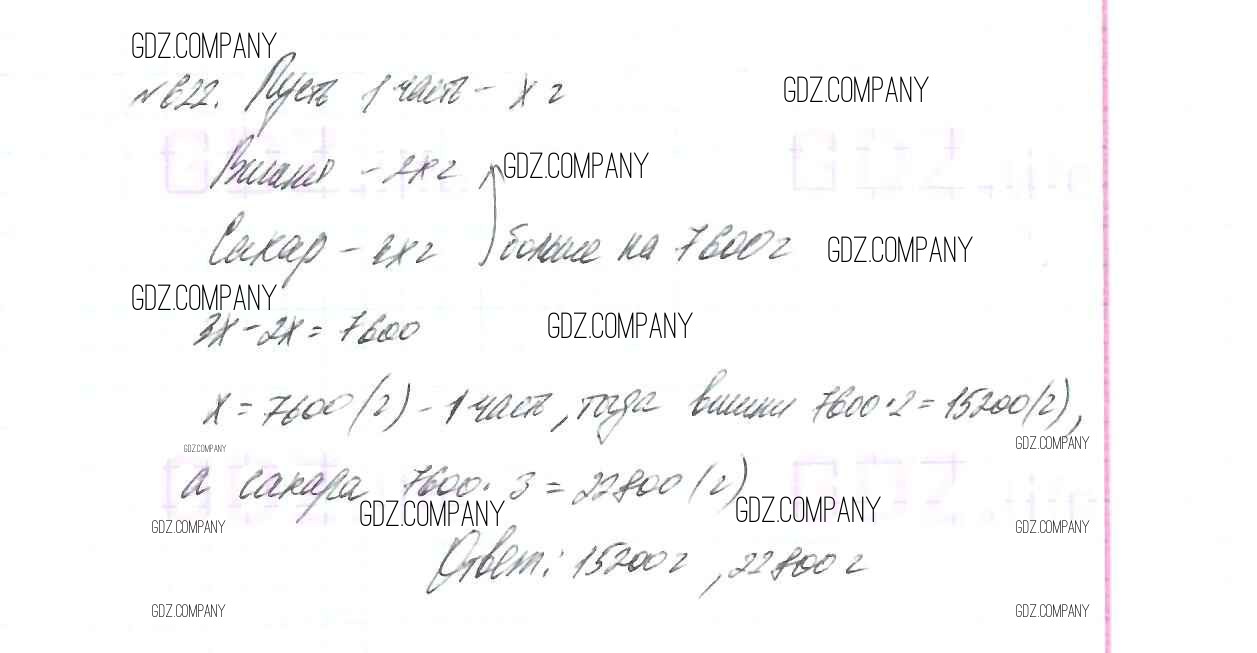 GDZ.COMPANY
№622. Пусть 1 часть - х г
GDZ.COMPANY
Вишня - 2х г
GDZ.COMPANY
Сахар - 3х г
больше на 7600 г
GDZ.COMPANY
GDZ.COMPANY
3х - 2х = 7600
GDZ.COMPANY
х = 7600 (г) - 1 часть, тогда вишни 7600 · 2 = 15200 (г),
GDZ.COMPANY
GDZ.COMPANY
а сахара 7600 · 3 = 22800 (г)
GDZ.COMPANY
GDZ.COMPANY
GDZ.COMPANY
GDZ.COMPANY
Ответ: 15200 г, 22800 г
GDZ.COMPANY
GDZ.COMPANY